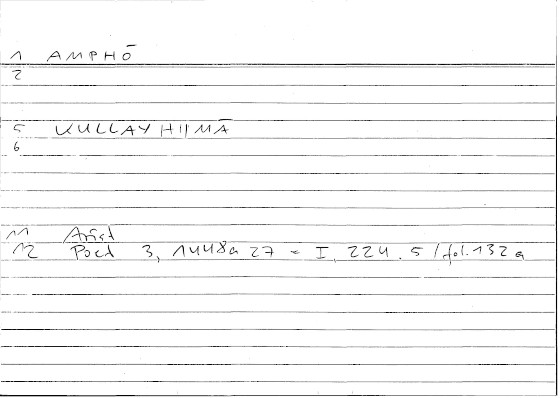 1 AMPHŌ
2
5 KULLAYHIIMĀ
6
11 Arist
12 Poet 3, 1448a 27 = I, 224.5 / fol. 132a